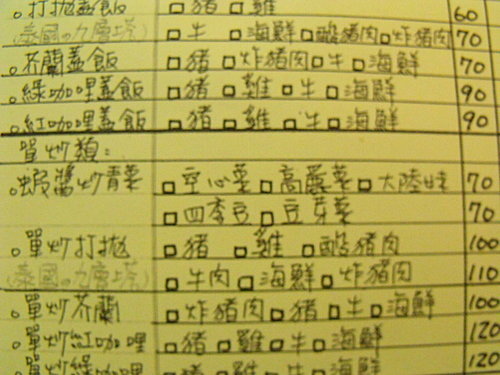 。打拋蓋飯 □豬 □雞 60
(泰國の九層塔) □牛 □海鮮 □醋豬肉 □炸豬肉 70
。芥蘭蓋飯 □豬 □炸豬肉 □牛 □海鮮 70
。綠咖哩蓋飯 □豬 □雞 □牛 □海鮮 90
。紅咖哩蓋飯 □豬 □雞 □牛 □海鮮 90
單炒類:
。蝦醬炒青菜 □空心菜 □高麗菜 □大陸妹 70
□四季豆 □豆芽菜 70
。單炒打拋 □豬 □雞 □醋豬肉 100
(泰國の九層塔) □牛肉 □海鮮 □炸豬肉 110
。單炒芥蘭 □炸豬肉 □豬 □牛 □海鮮 100
。單炒紅咖哩 □豬 □雞 □牛 □海鮮 120
。單炒綠咖哩 □豬 □雞 □牛 □海鮮 120